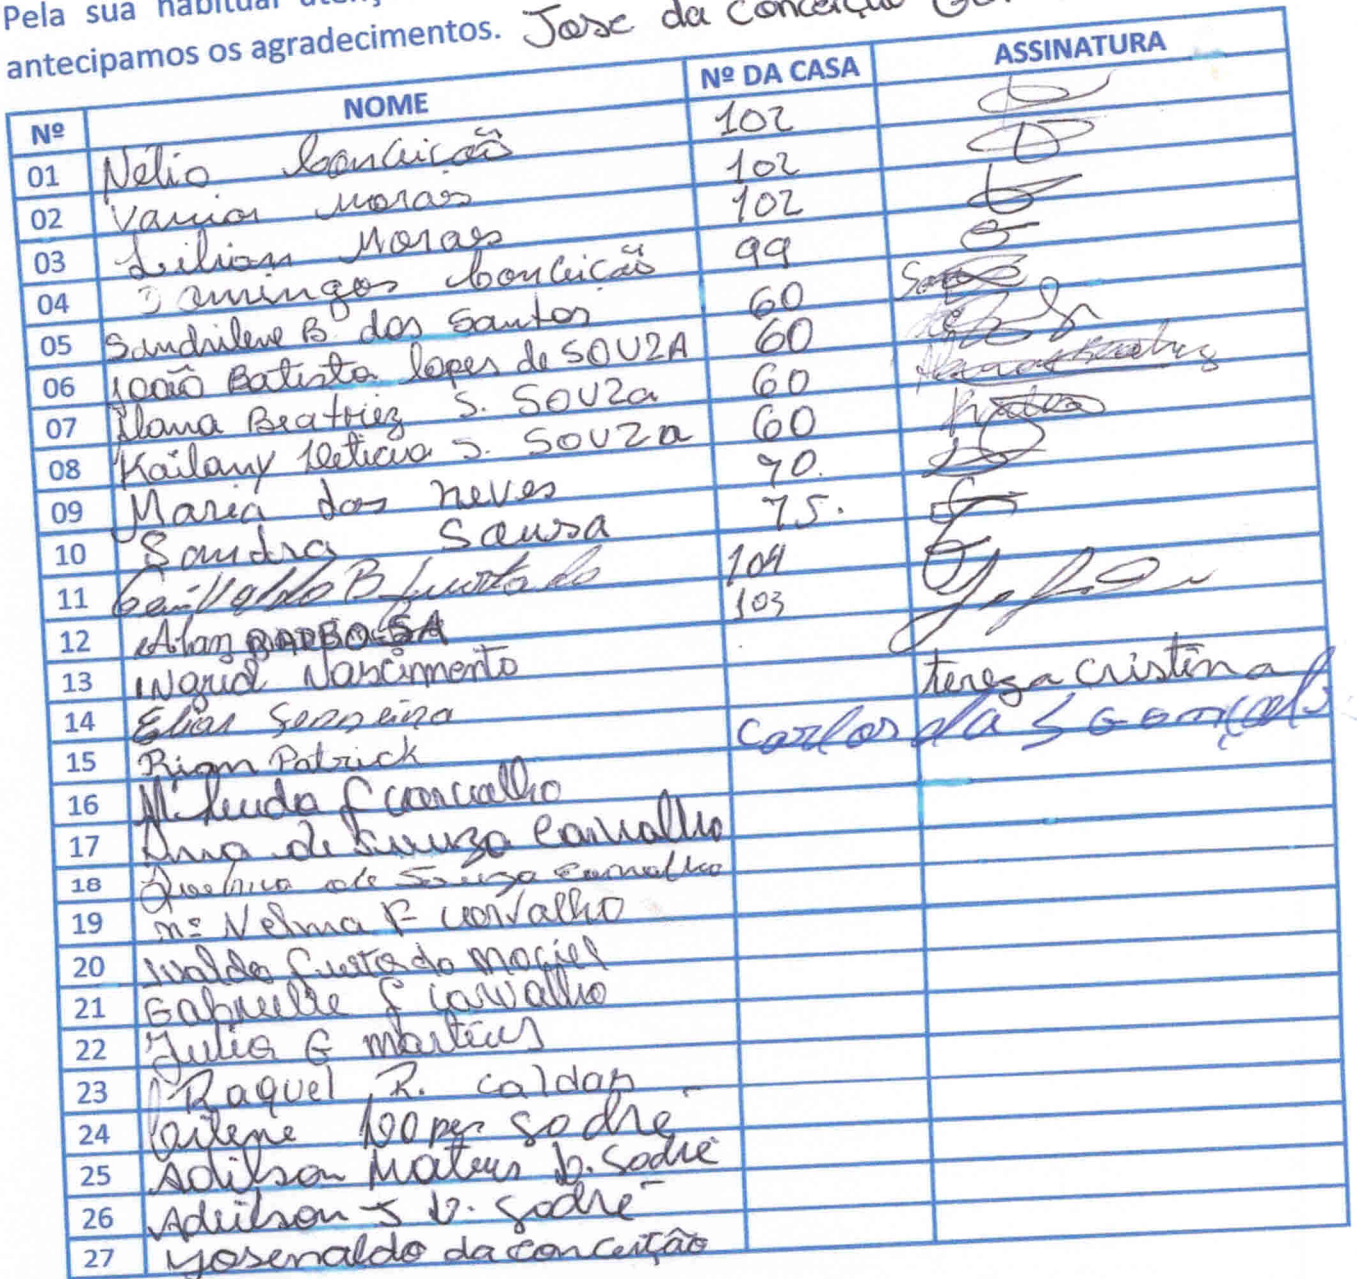 Pela sua habitual
antecipamos os agradecimentos. Jose da Conceição
Nº NOME Nº DA CASA ASSINATURA
01 Nélio Conceição 102
02 Vanior moraes 102
03 Lilian Moraes 102
04 Domingos Conceição 99
05 Sandrilene B. dos Santos 60
06 João Batista lopes de SOUZA 60
07 Ilana Beatriez S. SOUZa 60
08 Kailany Leticia S. SOUZa 60
09 Maria dos neves 70.
10 Sandra Sousa 75.
11 B furtado 104
12 Alan BARBOSA 103
13 INgrid Nascimento tereza Cristina
14 Elias Ferreira Carlos da S Gonçalo
15 Rian Patrick
16 f carvalho
17 Ana de Souza Carvalho
18 de Souza Carvalho
19 Mª Nelma F carvalho
20 Ivaldo furtado maciel
21 Gabrielle f carvalho
22 Julia G martins
23 Raquel R. caldas
24 lopes Sodré
25 Adilson Mateus L. Sodré
26 Adeilson S L. Sodré
27 Josenaldo da conceição